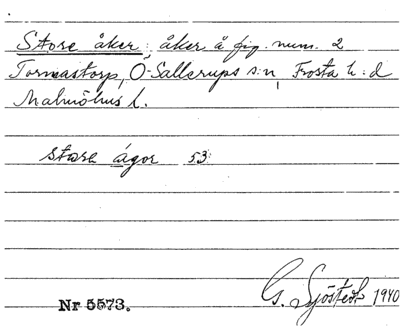 Store åker: åker å fig. num. 2
Tormastorp, Ö. Sallerups s:n, Frosta h:d
Malmöhus l.
Store ágor 53
G. Sjöstedt 1940
Nr 5573.